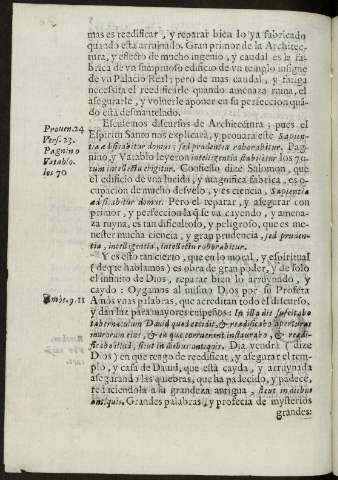 mas es reedificar, y reparar bien lo ya fabricado
quando está arruinado. Gran primor de la Architec-
tura, y efecto de mucho ingenio, y caudal es la fa-
brica de vn sumptuoso edificio de vn templo insigne
de vn Palacio Real; pero de mas caudal, y fatiga
necessita el reedificarle quando amenaza ruina, el
asegurarle, y volverle aponer en su perfeccion quã-
do está desmantelado.
Escusemos discursos de Architectura; pues el
Prouen.24
Espiritu Santo nos explicará, y prouará este Sapien-
Vers. 23.
tia ædificabitur domus; sed prudentia roborabitur. Pag-
Pagnino
nino, y Vatablo leyeron intelligentia stabilitur los 70.
Vatablo.
tum intellectu erigitur. Confiesso dize Salomon, que
los 70
el edificio de vna huida, y magnifica fabrica, es o-
cupacion de mucho desvelo, y es ciencia, Sapientia
ædificabitur domus. Pero el reparar, y asegurar con
primor, y perfeccion la q̃ se va cayendo, y amena-
za ruyna, es tan dificultoso, y peligroso, que es me-
nester mucha ciencia, y gran prudencia, sed pruden-
tia, intelligentia, intellectu roborabitur.
Y es esto tan cierto, que en lo moral, y espiritual
(de que hablamos) es obra de gran poder, y de solo
el infinito de Dios, reparar bien lo arruynado, y
caydo: Oygamos al mismo Dios por su Profeta
Amòs.9.11
Amòs vnas palabras, que acreditan todo el discurso,
y dan luz para mayores empeños: In illa die suscitabo
tabernaculum Dauid quod cecidit, & reædificabo aperturas
murorum eius, & ea quæ corruerant instaurabo, & reædi-
ficabo illud, sicut in diebus antiquis. Dia vendrá (dize
Dios) en que tengo de reedificar, y asegurar el tem-
plo, y casa de Dauid, que está cayda, y arruynada
asegurando las quiebras, que ha padecido, y padece,
reduciendola a su grandeza antigua, sicut in diebus
antiquis. Grandes palabras, y profecia de mysterios
grandes: